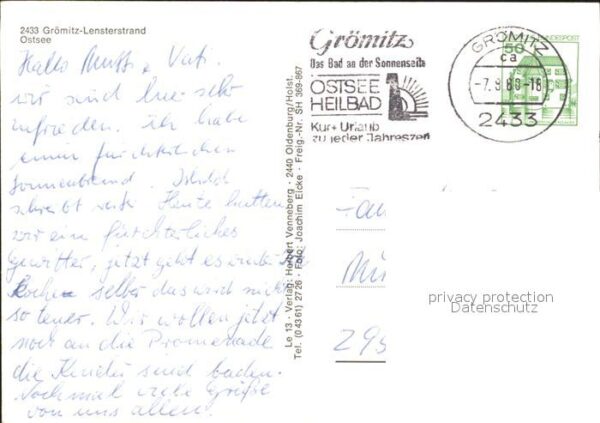 2433 Grömitz-Lensterstrand
Ostsee
Hallo Mutti u. Vati.
wir sind hier sehr
zufrieden. ich habe
einen fürchterlichen
Sonnenbrand.
schreibt Heute hatten
wir ein fürchterliches
Gewitter, jetzt geht es
Kochen selber das wird nicht
so teuer. Wir wollen jetzt
noch an die Promenade
die Kinder sind baden.
Nochmal viele Grüße
von uns allen.
Le 13 - Verlag: Herbert Venneberg - 2440 Oldenburg/Holst.
Tel. (0 43 61) 27 26 - Foto: Joachim Eicke - Freig.-Nr. SH 369-867
Grömitz
Das Bad an der Sonnenseite
OSTSEE
HEILBAD
Kur + Urlaub
zu jeder Jahreszeit
GRÖMITZ
ca
-7.9.80-18
2433
50
BUNDESPOST
Fam
295
privacy protection
Datenschutz